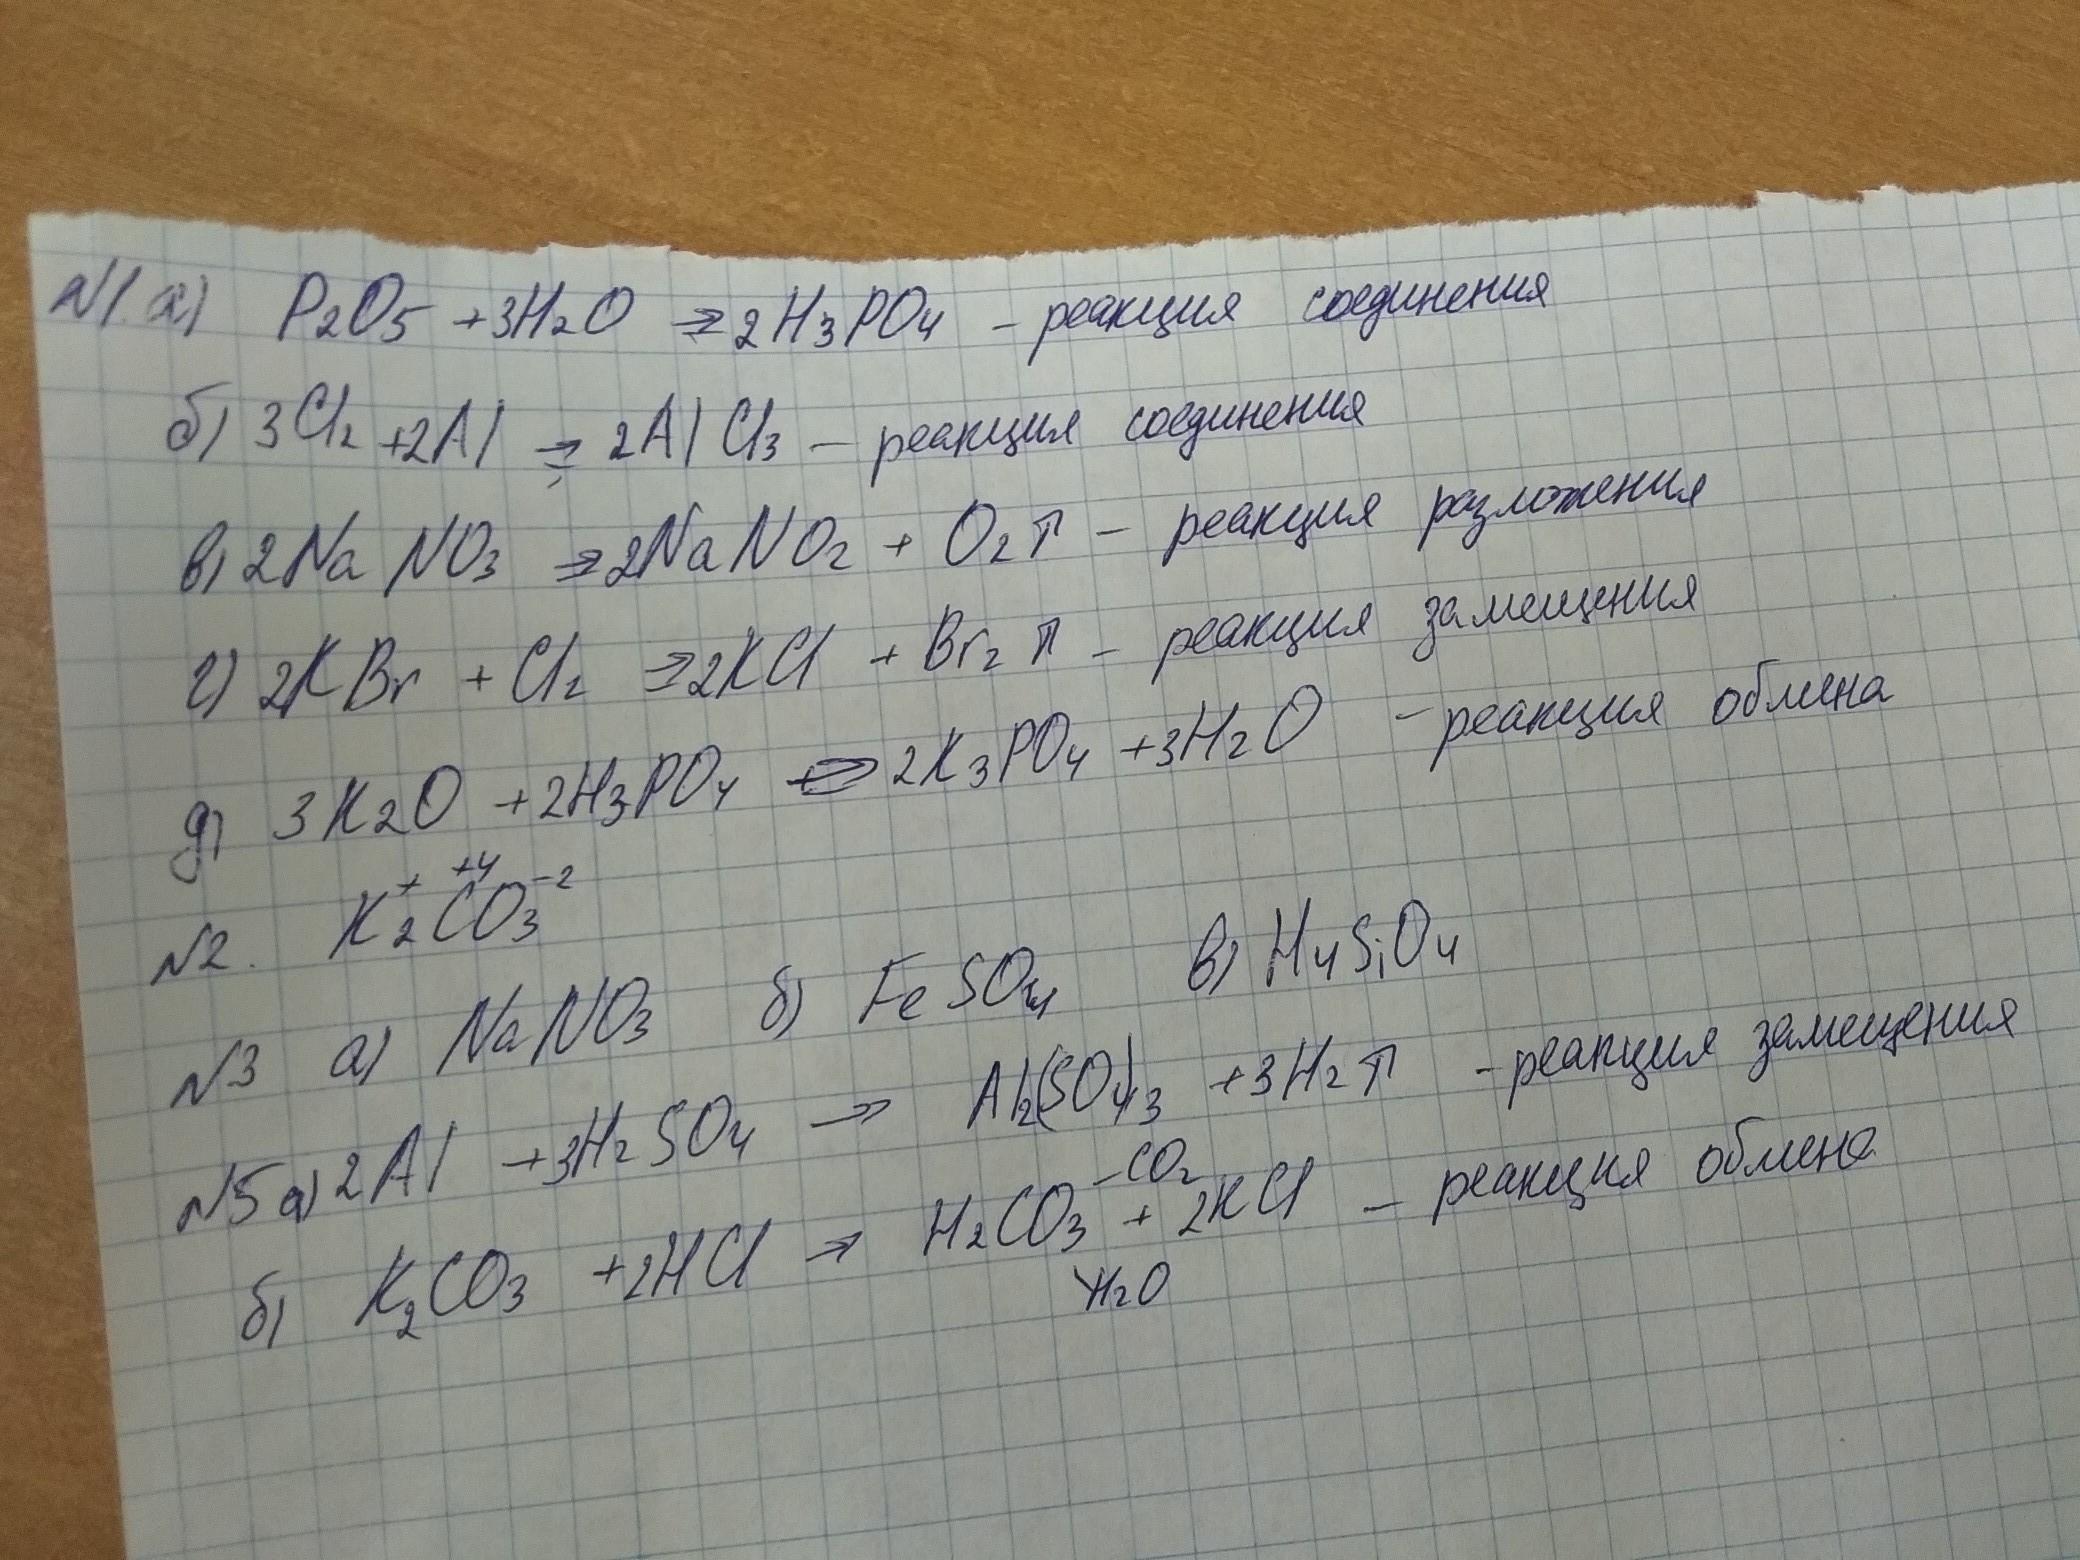 №1. а) P2O5 + 3H2O → 2H3PO4 – реакция соединения
б) 3Cl2 + 2Al → 2AlCl3 – реакция соединения
в) 2NaNO3 → 2NaNO2 + O2↑ – реакция разложения
г) 2KBr + Cl2 → 2KCl + Br2↑ – реакция замещения
д) 3K2O + 2H3PO4 → 2K3PO4 + 3H2O – реакция обмена
№2. K2⁺C⁺⁴O3⁻²
№3 а) NaNO3 б) FeSO4 в) H4SiO4
№5 а) 2Al + 3H2SO4 → Al2(SO4)3 + 3H2↑ – реакция замещения
б) K2CO3 + 2HCl → H2CO3 + 2KCl – реакция обмена
CO2
H2O